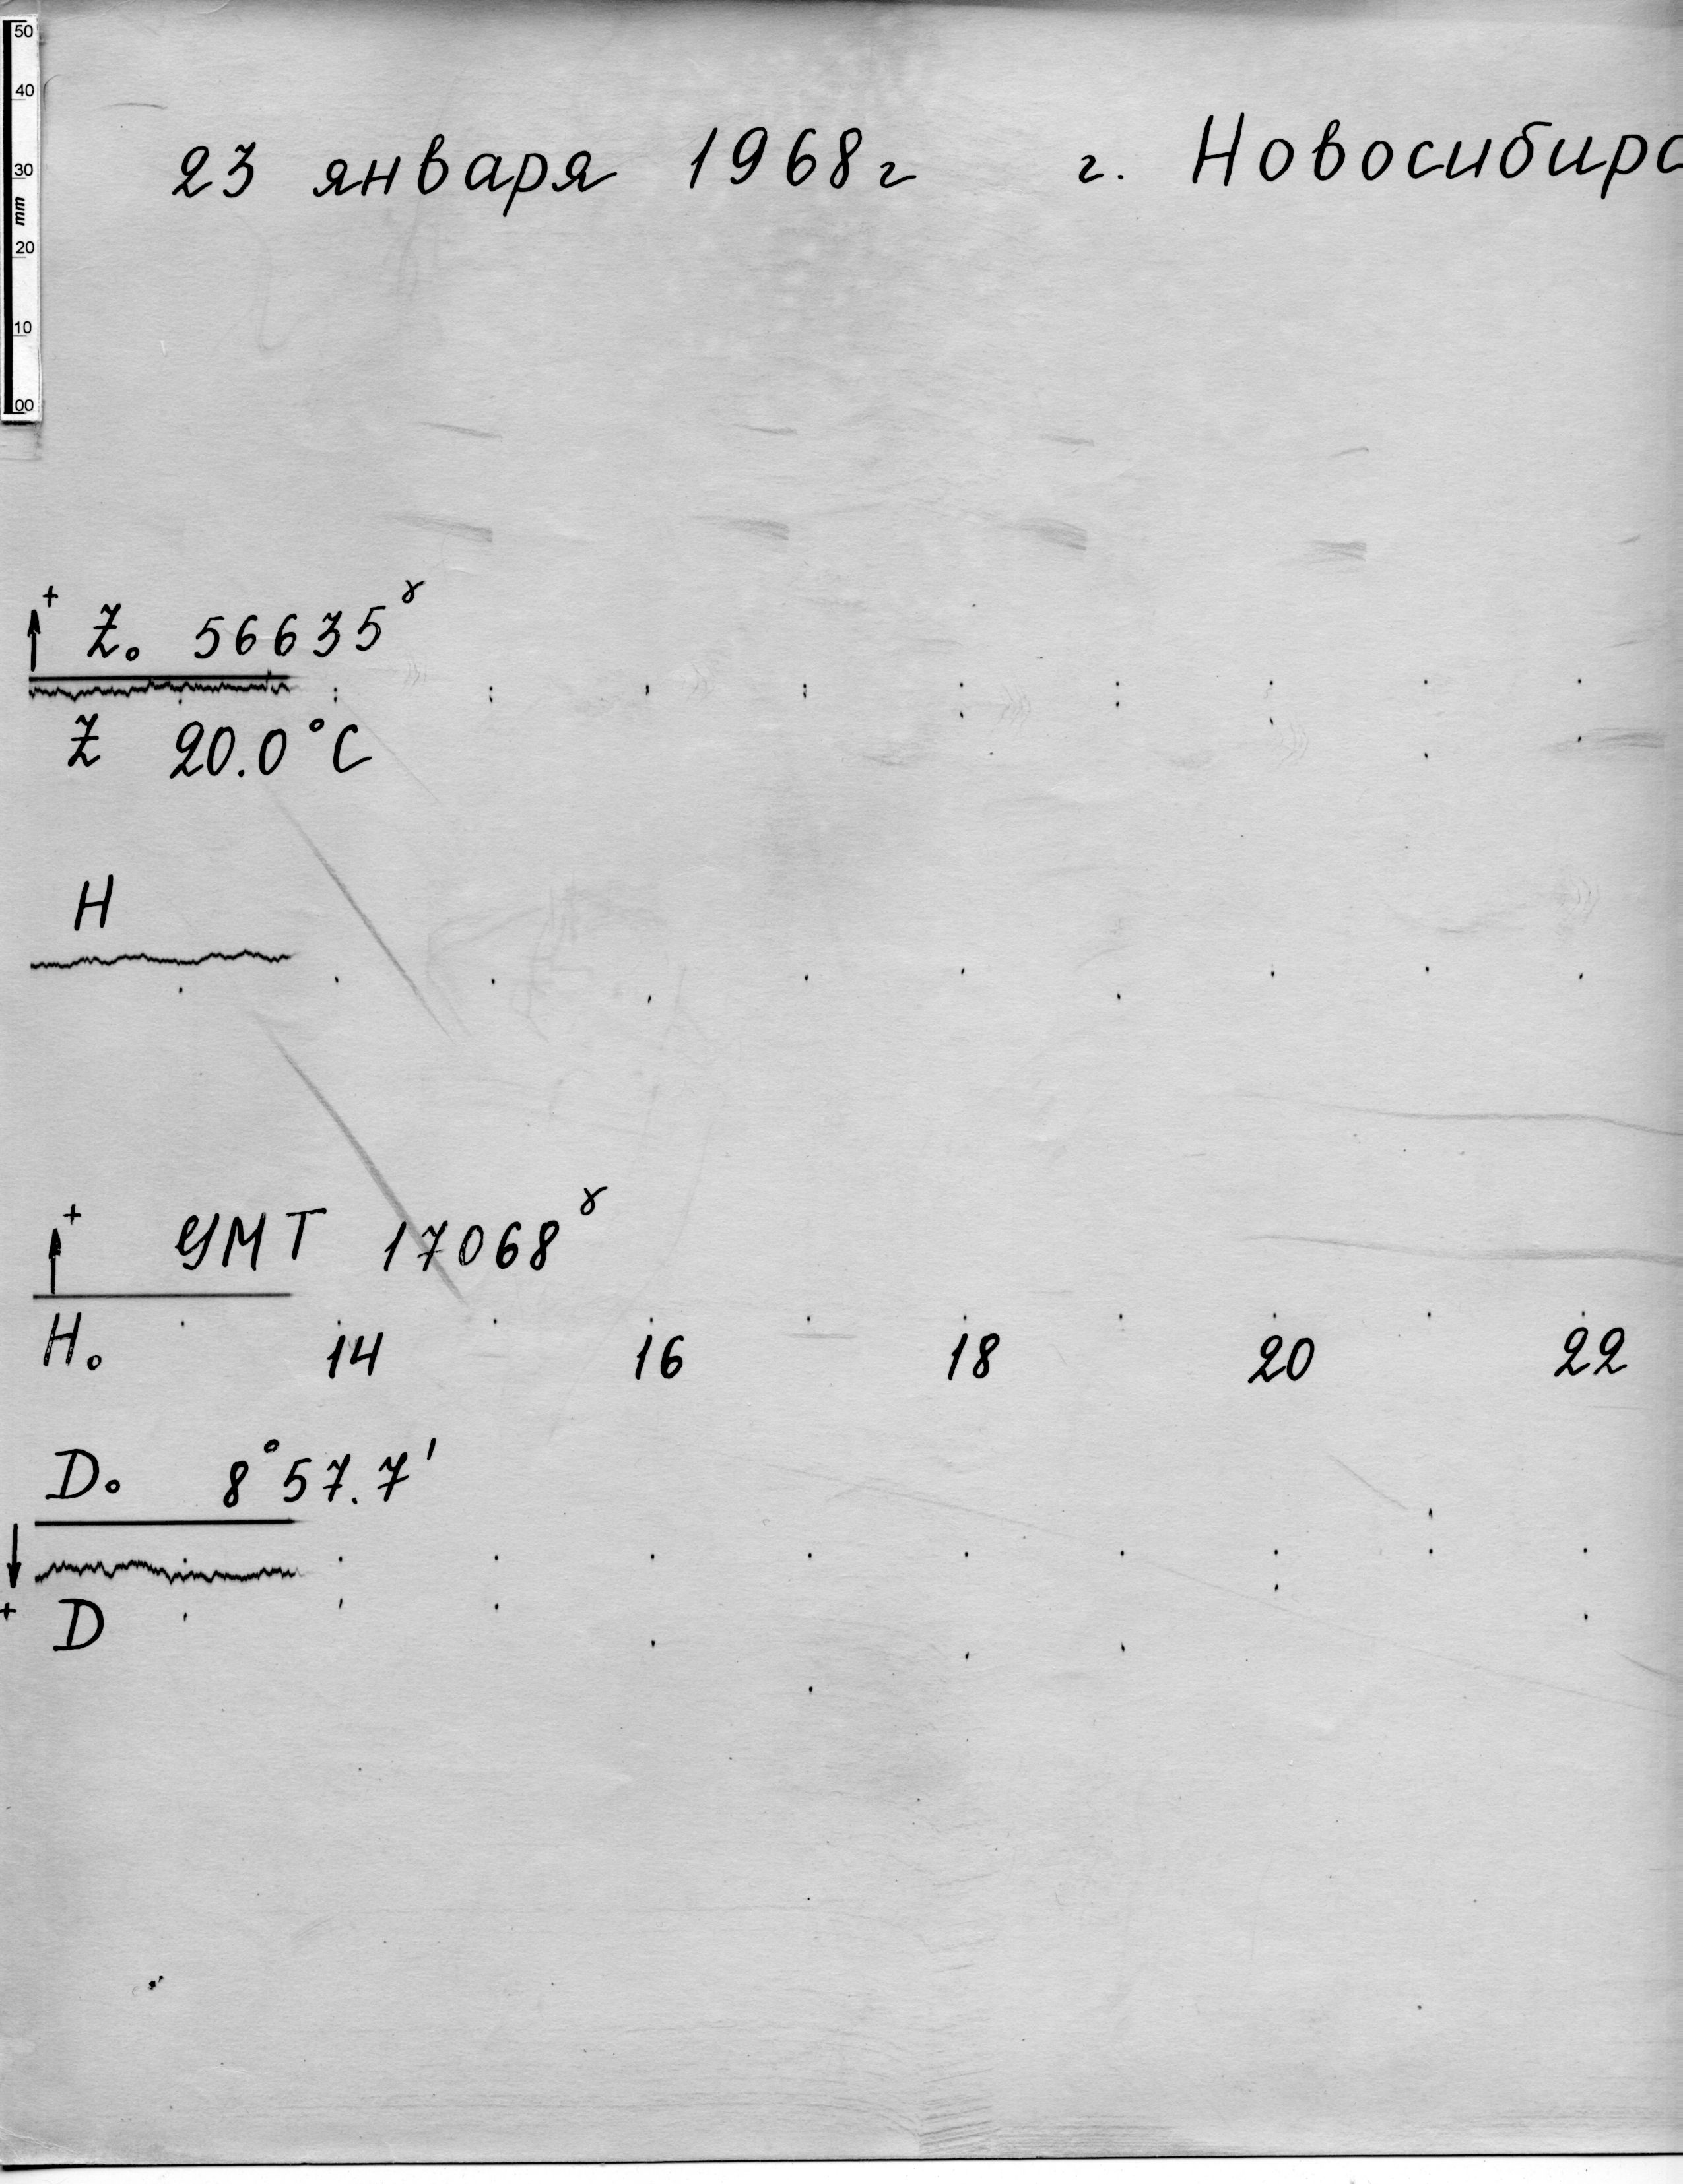 50
40
30
mm
20
10
00
23 января 1968г г. Новосибирс
+ Z₀ 56635ɣ
Z 20.0°C
H
+ УМТ 17068ɣ
H₀ 14 16 18 20 22
D₀ 8°57.7'
+ D